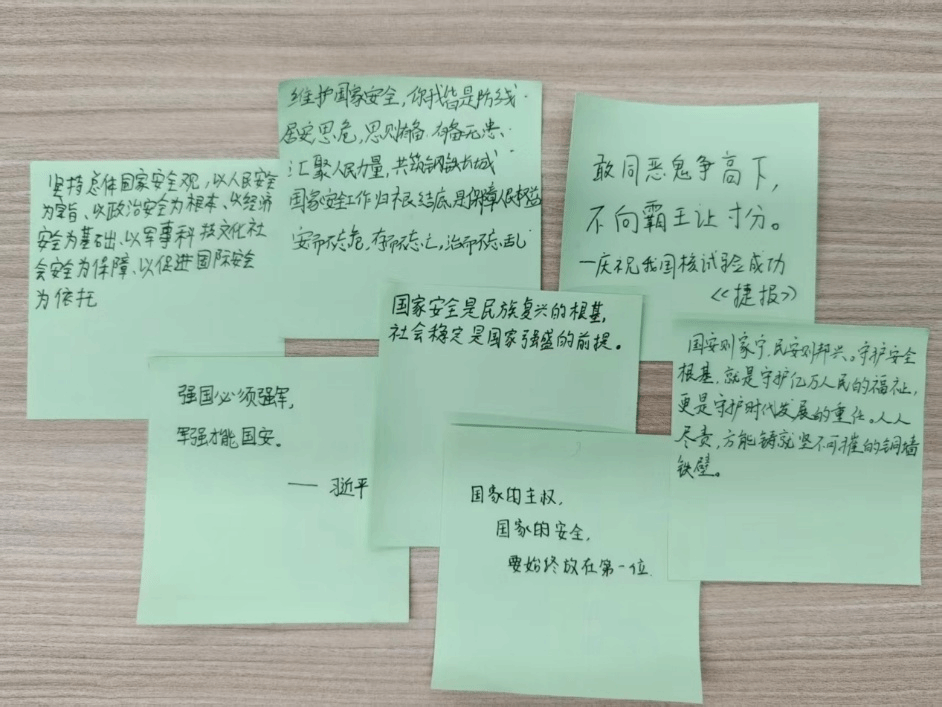 坚持总体国家安全观，以人民安全
为宗旨、以政治安全为根本、以经济
安全为基础、以军事科技文化社
会安全为保障、以促进国际安全
为依托
维护国家安全，你我皆是防线.
居安思危，思则有备.有备无患、
汇聚人民力量，共筑钢铁长城
国家安全工作归根结底是保障人民权益
安而不忘危，存而不忘亡，治而不忘乱
敢同恶鬼争高下，
不向霸王让寸分。
—庆祝我国核试验成功
《捷报》
强国必须强军，
军强才能国安。
—— 习近平
国家安全是民族复兴的根基，
社会稳定是国家强盛的前提。
国家的主权，
国家的安全，
要始终放在第一位.
国安则家宁，民安则邦兴。守护安全
根基，就是守护亿万人民的福祉，
更是守护时代发展的重任。人人
尽责，方能铸就坚不可摧的铜墙
铁壁。